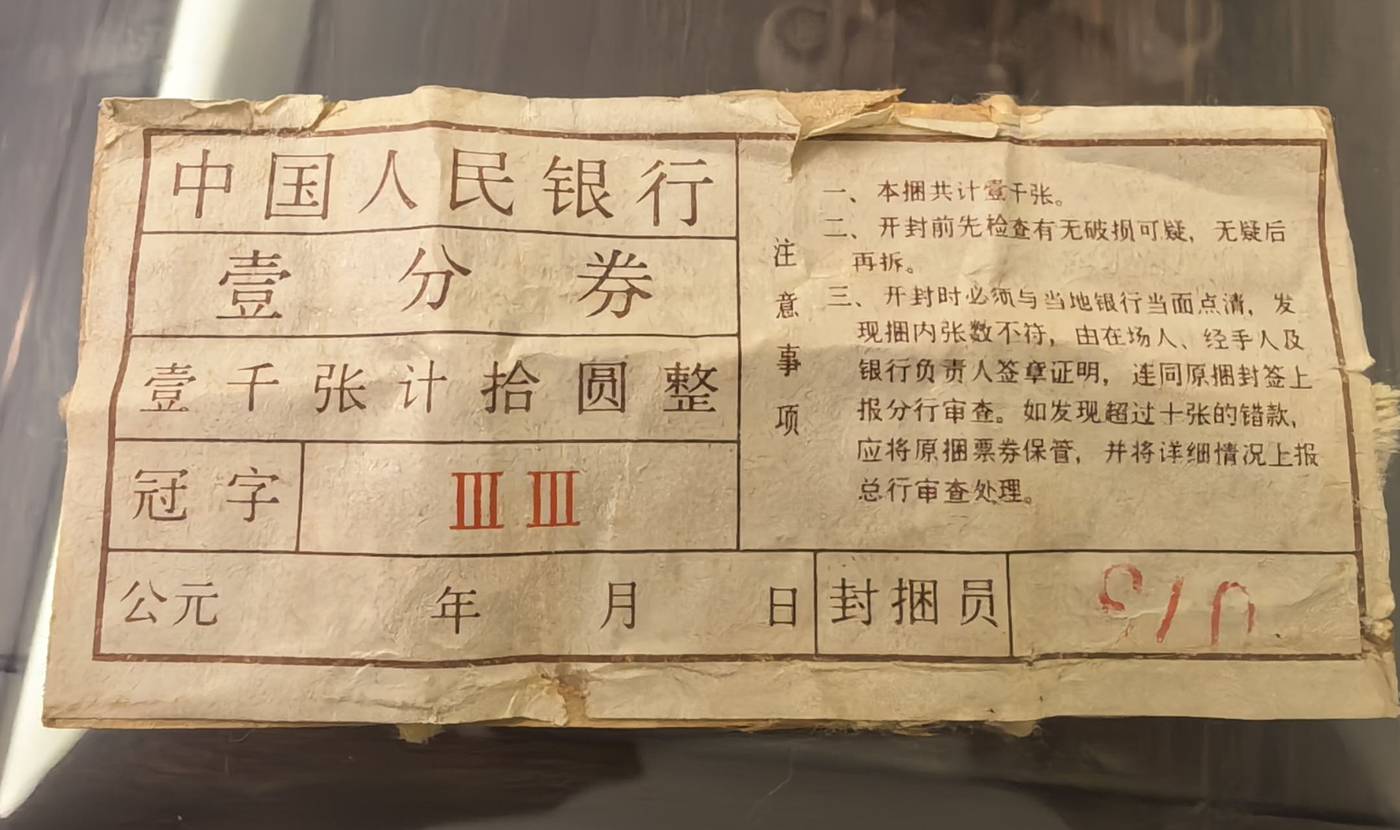 中国人民银行
壹分券
壹千张计拾圆整
冠字 ⅢⅢ
公元 年 月 日
注意事项
一、本捆共计壹千张。
二、开封前先检查有无破损可疑，无疑后
再拆。
三、开封时必须与当地银行当面点清，发
现捆内张数不符，由在场人、经手人及
银行负责人签章证明，连同原捆封签上
报分行审查。如发现超过十张的错款，
应将原捆票券保管，并将详细情况上报
总行审查处理。
封捆员